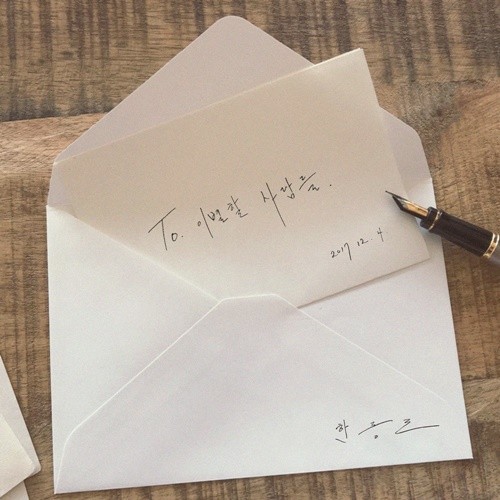 To. 이별할 사람들.
2017. 12. 4
한올